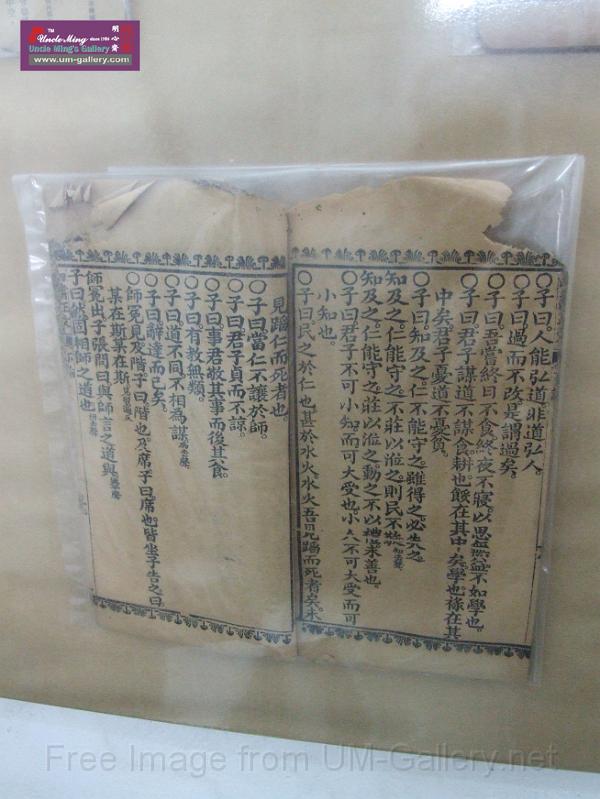 TM
Uncle Ming since 1986
Uncle Ming's Gallery
www.um-gallery.com
明心齋
○子曰。人能弘道。非道弘人。
○子曰。過而不改。是謂過矣。
○子曰。吾嘗終日不食。終夜不寢。以思。無益。不如學也。
○子曰。君子謀道不謀食。耕也。餒在其中矣。學也。祿在其
中矣。君子憂道不憂貧。
○子曰。知及之。仁不能守之。雖得之。必失之。
知及之。仁能守之。不莊以涖之。則民不敬。
知及之。仁能守之。莊以涖之。動之不以禮。未善也。
○子曰。君子不可小知。而可大受也。小人不可大受。而可
小知也。
○子曰。民之於仁也。甚於水火。水火吾見蹈而死者矣。未
見蹈仁而死者也。
○子曰。當仁不讓於師。
○子曰。君子貞而不諒。
○子曰。事君敬其事而後其食。
○子曰。有教無類。
○子曰。道不同。不相為謀。
○子曰。辭達而已矣。
○師冕見。及階。子曰。階也。及席。子曰。席也。皆坐。子告之曰。
某在斯。某在斯。
師冕出。子張問曰。與師言之道與。
子曰。然。固相師之道也。
Free Image from UM-Gallery.net